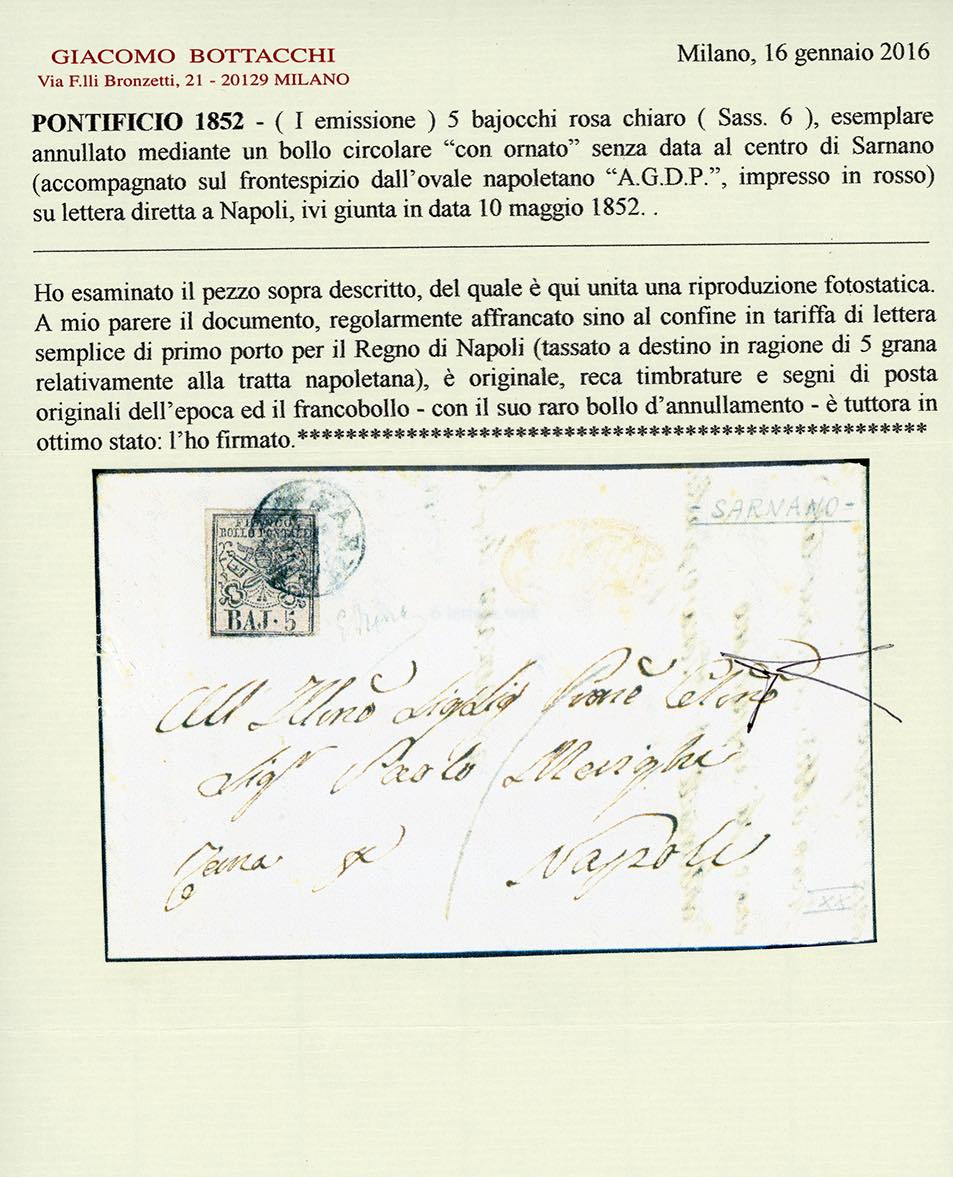 GIACOMO BOTTACCHI
Via F.lli Bronzetti, 21 - 20129 MILANO
Milano, 16 gennaio 2016
PONTIFICIO 1852 - ( I emissione ) 5 bajocchi rosa chiaro ( Sass. 6 ), esemplare
annullato mediante un bollo circolare “con ornato” senza data al centro di Sarnano
(accompagnato sul frontespizio dall’ovale napoletano “A.G.D.P.”, impresso in rosso)
su lettera diretta a Napoli, ivi giunta in data 10 maggio 1852. .
Ho esaminato il pezzo sopra descritto, del quale è qui unita una riproduzione fotostatica.
A mio parere il documento, regolarmente affrancato sino al confine in tariffa di lettera
semplice di primo porto per il Regno di Napoli (tassato a destino in ragione di 5 grana
relativamente alla tratta napoletana), è originale, reca timbrature e segni di posta
originali dell’epoca ed il francobollo - con il suo raro bollo d’annullamento - è tuttora in
ottimo stato: l’ho firmato.****************************************************
- SARNANO -
FRANCO
BOLLO POSTALE
BAJ · 5
Sigr Paolo
Napoli
XX